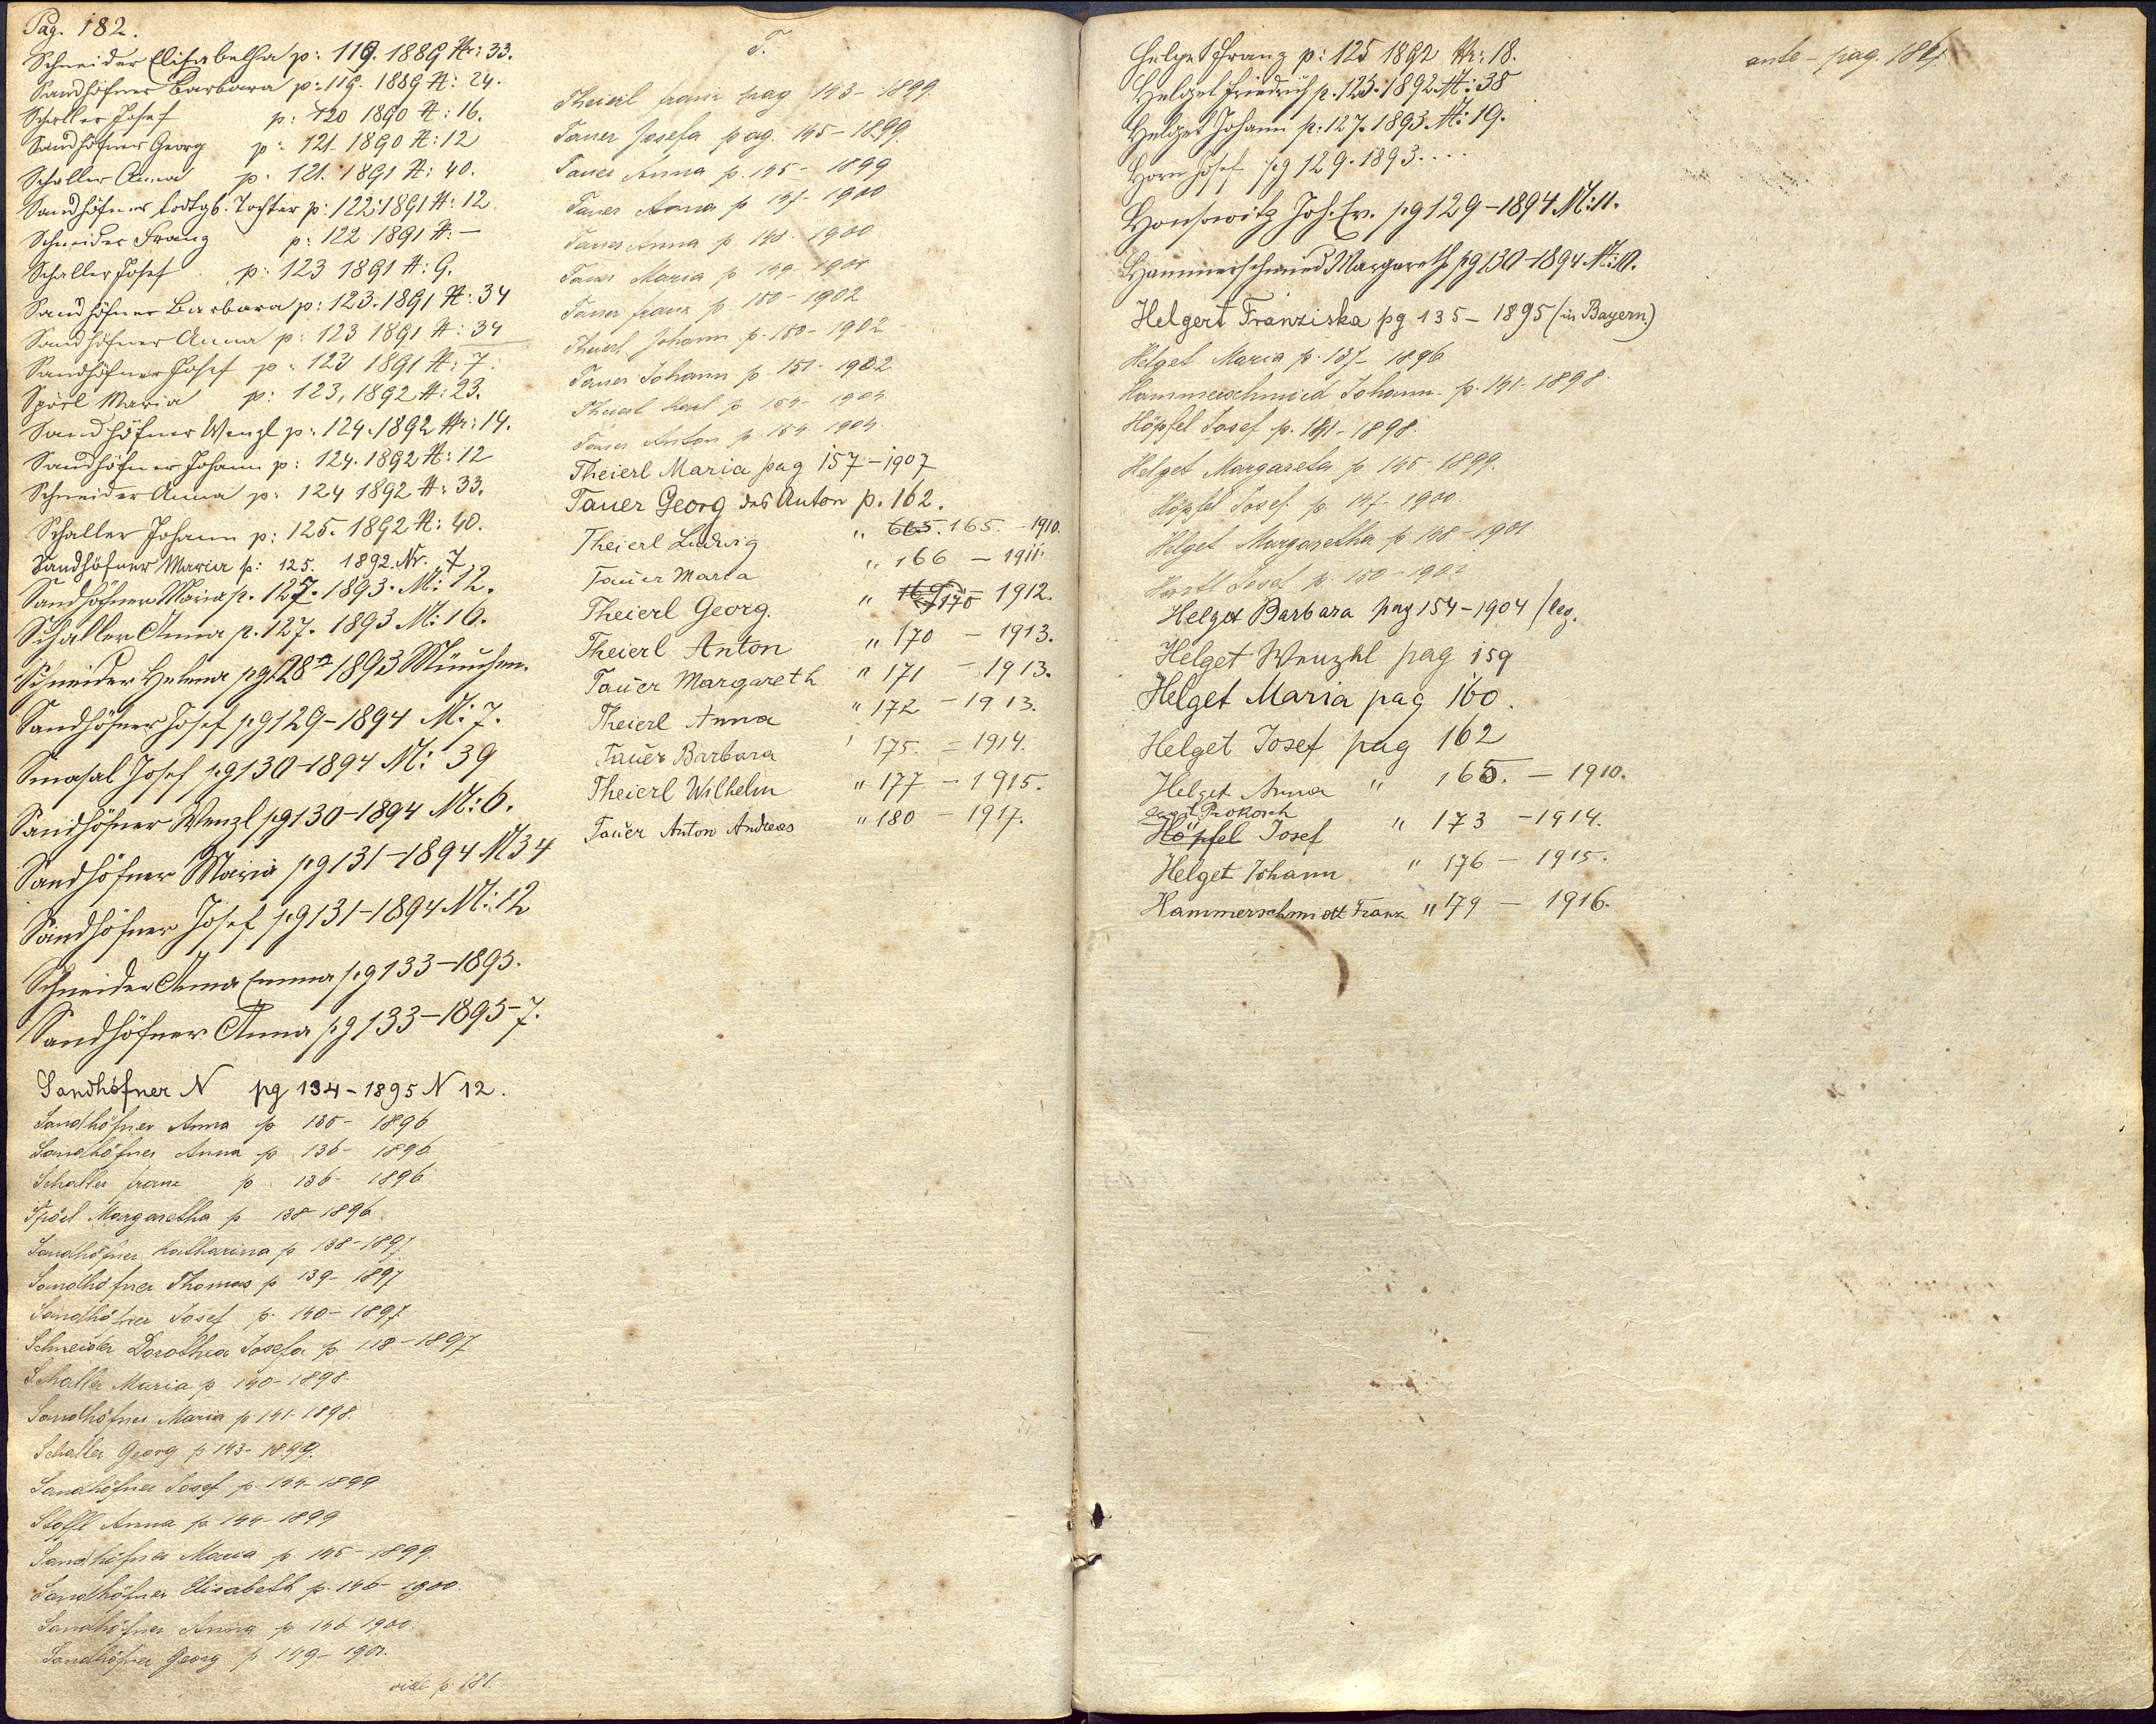 Pag. 182.
Schneider Elisabetha p: 119. 1889 Nr: 33.
Sandhöfner Barbara p: 119. 1889 N: 24.
Schaller Josef p: 120 1890 N: 16.
Sandhöfner Georg p: 121. 1890 N: 12
Schaller Anna p: 121. 1891 N: 40.
Sandhöfner todtgb. Tochter p: 122 1891 N: 12.
Schneider Franz p: 122 1891 N: —
Schaller Josef p: 123 1891 N: 9.
Sandhöfner Barbara p: 123. 1891 N: 34
Sandhöfner Anna p: 123 1891 N: 34
Sandhöfner Josef p: 123 1891 N: 7.
Spörl Maria p: 123, 1892 N: 23.
Sandhöfner Wenzl p: 124. 1892 Nr: 14.
Sandhöfner Johann p: 124. 1892 N: 12
Schneider Anna p: 124 1892 N: 33.
Schaller Johann p: 125. 1892 N: 40.
Sandhöfner Maria p: 125. 1892. Nr. 7.
Sandhöfner Maria p. 127. 1893. N: 12.
Schaller Anna p. 127. 1893 N: 16.
Schneider Helena pg 128 1893 München.
Sandhöfner Josef pg 129 – 1894 N: 7.
Smasal Josef pg 130 – 1894 N: 39
Sandhöfner Wenzl pg 130 – 1894 N: 6.
Sandhöfner Maria pg 131 – 1894 N 34
Sandhöfner Josef pg 131 – 1894 N: 12
Schneider Anna Emma pg 133 – 1895.
Sandhöfner Anna pg 133 – 1895 – 7.
Sandhöfner N pg 134 – 1895 N 12.
Sandhöfner Anna p 135 – 1896
Sandhöfner Anna p 136 – 1896
Schaller franz p 136 – 1896
Spörl Margaretha p 138 1896
Sandhöfner Katharina p 138 – 1897
Sandhöfner Thomas p 139 – 1897
Sandhöfner Josef p. 140 – 1897
Schneider Dorothea Josefa p 118 – 1897
Schaller Maria p 140 – 1898.
Sandhöfner Maria p 141 1898.
Schaller Georg p 143 – 1899.
Sandhöfner Josef p. 144 – 1899
Stoffl Anna p 144 – 1899
Sandhöfner Maria p 145 – 1899.
Sandhöfner Elisabeth p. 146 – 1900.
Sandhöfner Anna p 146 1900
Sandhöfner Georg p 149 – 1901.
vide p. 181.
T.
Theierl franz pag 143 – 1899.
Tauer Josefa pag. 145 – 1899.
Tauer Anna p. 145 – 1899
Tauer Anna p 147 – 1900
Tauer Anna p 148 – 1900
Tauer Maria p 149 – 1901
Tauer franz p. 150 – 1902
Theierl Johann p. 150 – 1902
Tauer Johann p 151 – 1902
Theierl Karl p 154 – 1904
Tauer Anton p. 154 1904.
Theierl Maria pag 157 – 1907
Tauer Georg des Anton p. 162.
Theierl Ludwig „ 665. 165. – 1910.
Tauer Maria „ 166 – 1911.
Theierl Georg. „ 169 170 1912.
Theierl Anton „ 170 – 1913.
Tauer Margareth „ 171 – 1913.
Theierl Anna „ 172 – 1913.
Tauer Barbara 175. – 1914.
Theierl Wilhelm „ 177 – 1915.
Tauer Anton Andreas „ 180 – 1917.
Helget Franz p: 125 1892 Nr: 18.
Helget Friedrich p. 125. 1892 N: 38
Helget Johann p: 127. 1893 N: 19.
Horn Josef pg 129. 1893....
Honsowitz Joh. Ev. pg 129 – 1894 N: 11.
Hammerschmied Margareth pg 130 – 1894 N: 10.
Helgert Franziska pg 135 – 1895 (in Bayern.)
Helget Maria p. 137 – 1896
Hammerschmied Johann p. 141 – 1898.
Höpfel Josef p. 141 – 1898.
Helget Margareta p 145 – 1899.
Höpfel Josef p. 147 – 1900.
Helget Margaretha p 148 – 1901
Josef p. 150 – 1902
Helget Barbara pag 154 – 1904 / leg.
Helget Wenzhl pag 159
Helget Maria pag 160.
Helget Josef pag 162
Helget Anna „ 165. – 1910.
Prokosch
Höpfel Josef „ 173 – 1914.
Helget Johann „ 176 – 1915.
Hammerschmidt Franz „ 179 – 1916.
ante – pag. 181.